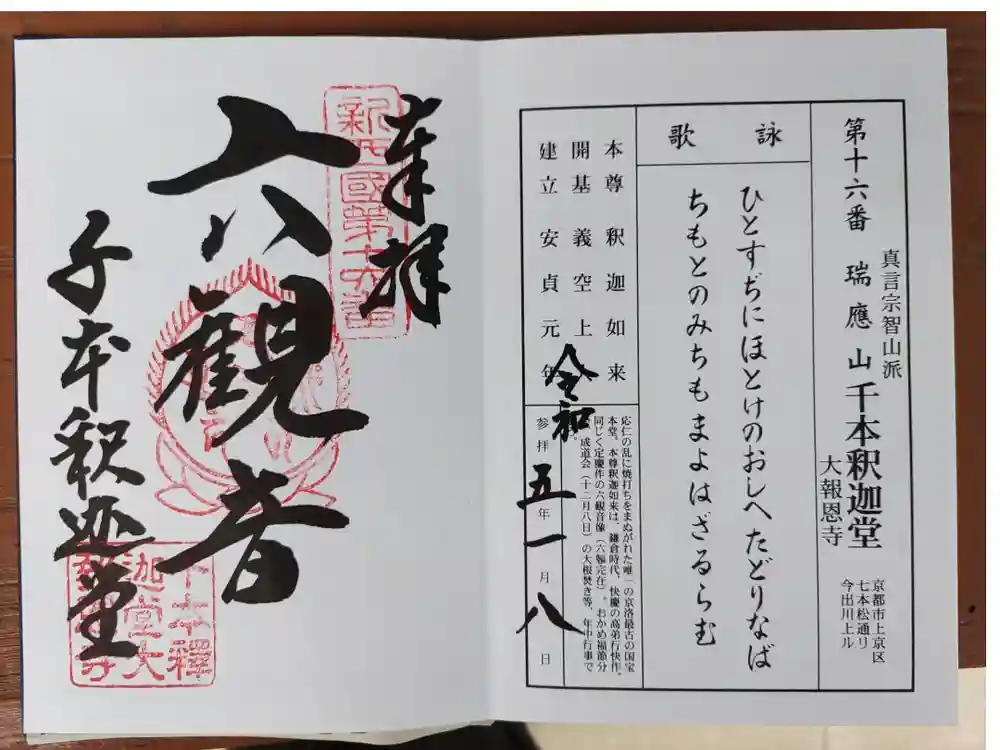 真言宗智山派
第十六番 瑞應山 千本釈迦堂
大報恩寺
京都市上京区
七本松通り
今出川上ル
詠歌
ひとすぢにほとけのおしへたどりなば
ちもとのみちもまよはざるらむ
本尊 釈迦如来
開基 義空上人
建立 安貞元年
応仁の乱に焼打ちをまぬがれた唯一の京洛最古の国宝
本堂。本尊釈迦如来は、鎌倉時代、快慶の高弟行快作。
同じく定慶作の六観音像(六軀完在)。おかめ福節分
、成道会(十二月八日)の大根焚き等、年中行事で
参拝 令和五年一月八日
奉拝
新西國第十六番
六八観音
千本釈迦堂
千本釋
迦堂大
報恩寺